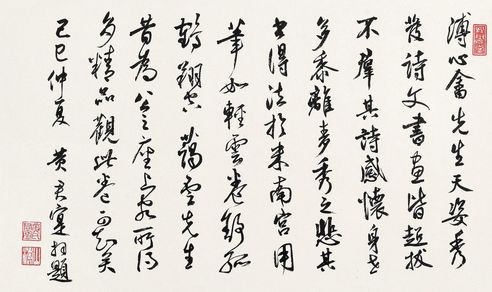 溥心畬先生天姿秀
發詩文書畫皆超拔
不羣其詩感懷身世
多黍離麥秀之悲其
書得法於米南宮用
筆如輕雲卷舒孤
鶴翔空藹雲先生
昔為公之座上客所得
多精品觀此卷可知矣
己巳仲夏 黃君寔拜題